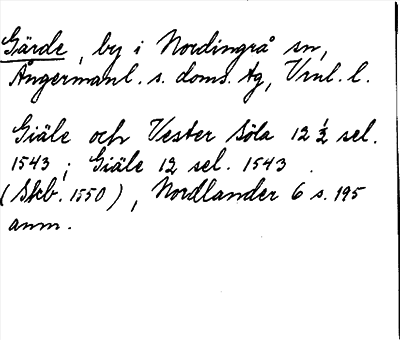 Gärde, by i Nordingrå sn,
Ångermanl. s. doms. tg, Vnl. l.
Giäle och Vester Söla 12 ½ sel.
1543; Giäle 12 sel. 1543.
(Skb. 1550), Nordlander 6 s. 195
anm.